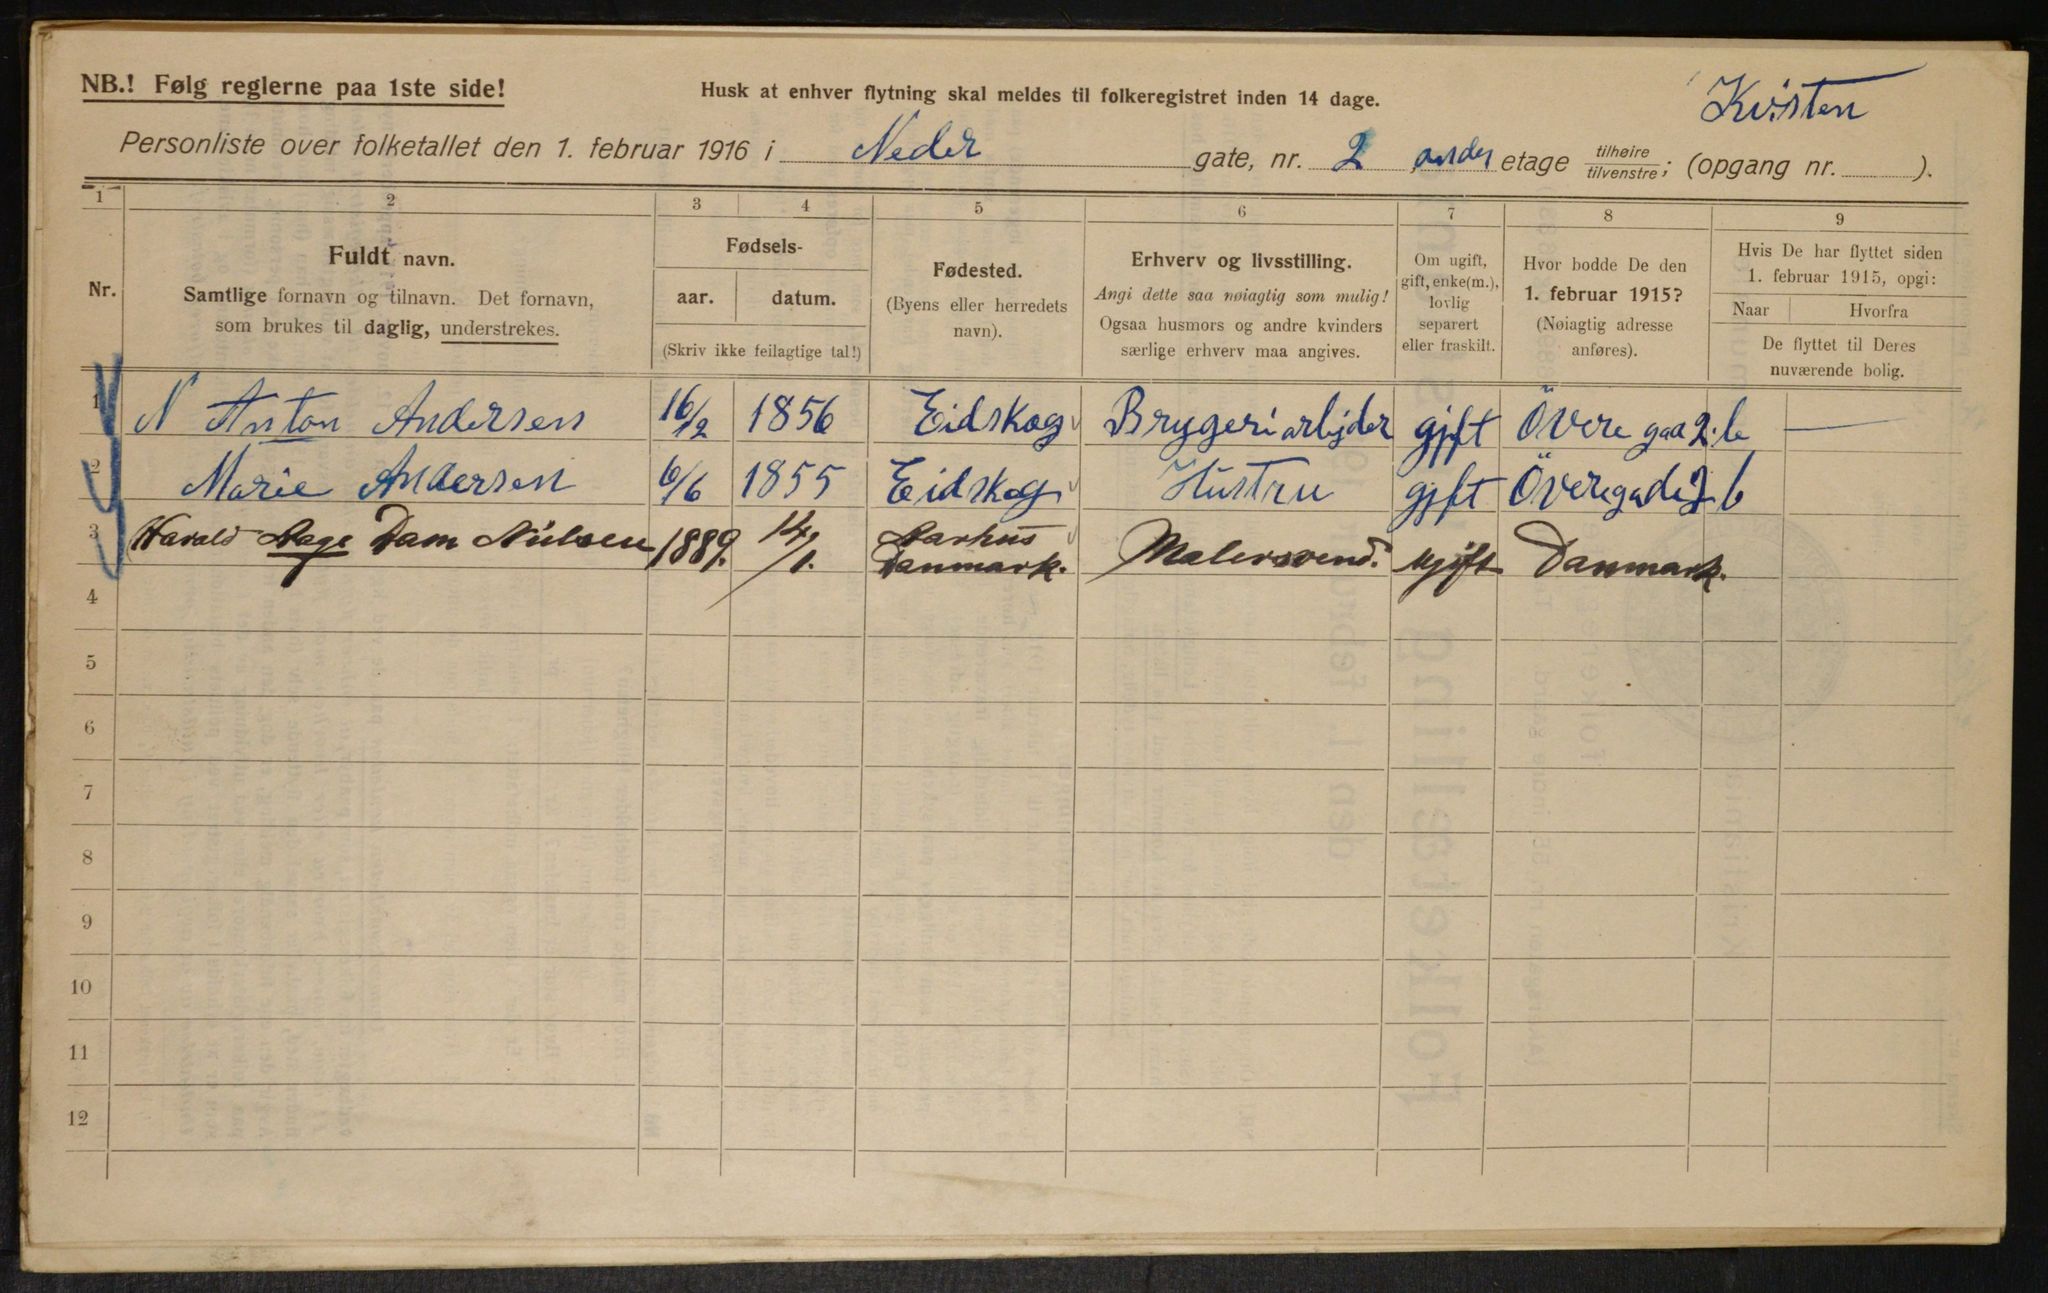 NB.! Følg reglerne paa 1ste side!
Husk at enhver flytning skal meldes til folkeregistret inden 14 dage.
Kvisten
Personliste over folketallet den 1. februar 1916 i Neder gate, nr. 2 anden etage tilhøire/tilvenstre; (opgang nr. ).
1 2 3 4 5 6 7 8 9
Nr.
Fuldt navn.
Samtlige fornavn og tilnavn. Det fornavn,
som brukes til daglig, understrekes.
Fødsels-
aar. datum.
(Skriv ikke feilagtige tal!)
Fødested.
(Byens eller herredets
navn).
Erhverv og livsstilling.
Angi dette saa nøiagtig som mulig!
Ogsaa husmors og andre kvinders
særlige erhverv maa angives.
Om ugift,
gift, enke(m.),
lovlig
separert
eller fraskilt.
Hvor bodde De den
1. februar 1915?
(Nøiagtig adresse
anføres).
Hvis De har flyttet siden
1. februar 1915, opgi:
Naar Hvorfra
De flyttet til Deres
nuværende bolig.
1 N Anton Andersen 16/2 1856 Eidskog Brygeriarbejder gift Övere gaa 2.b
2 Marie Andersen 6/6 1855 Eidskog Hustru gift Överegade 2 b
3 Harald Aage Dam Nielsen 1889. 14/1. Aarhus Danmark. Malersvend. ugift Danmark.
4
5
6
7
8
9
10
11
12